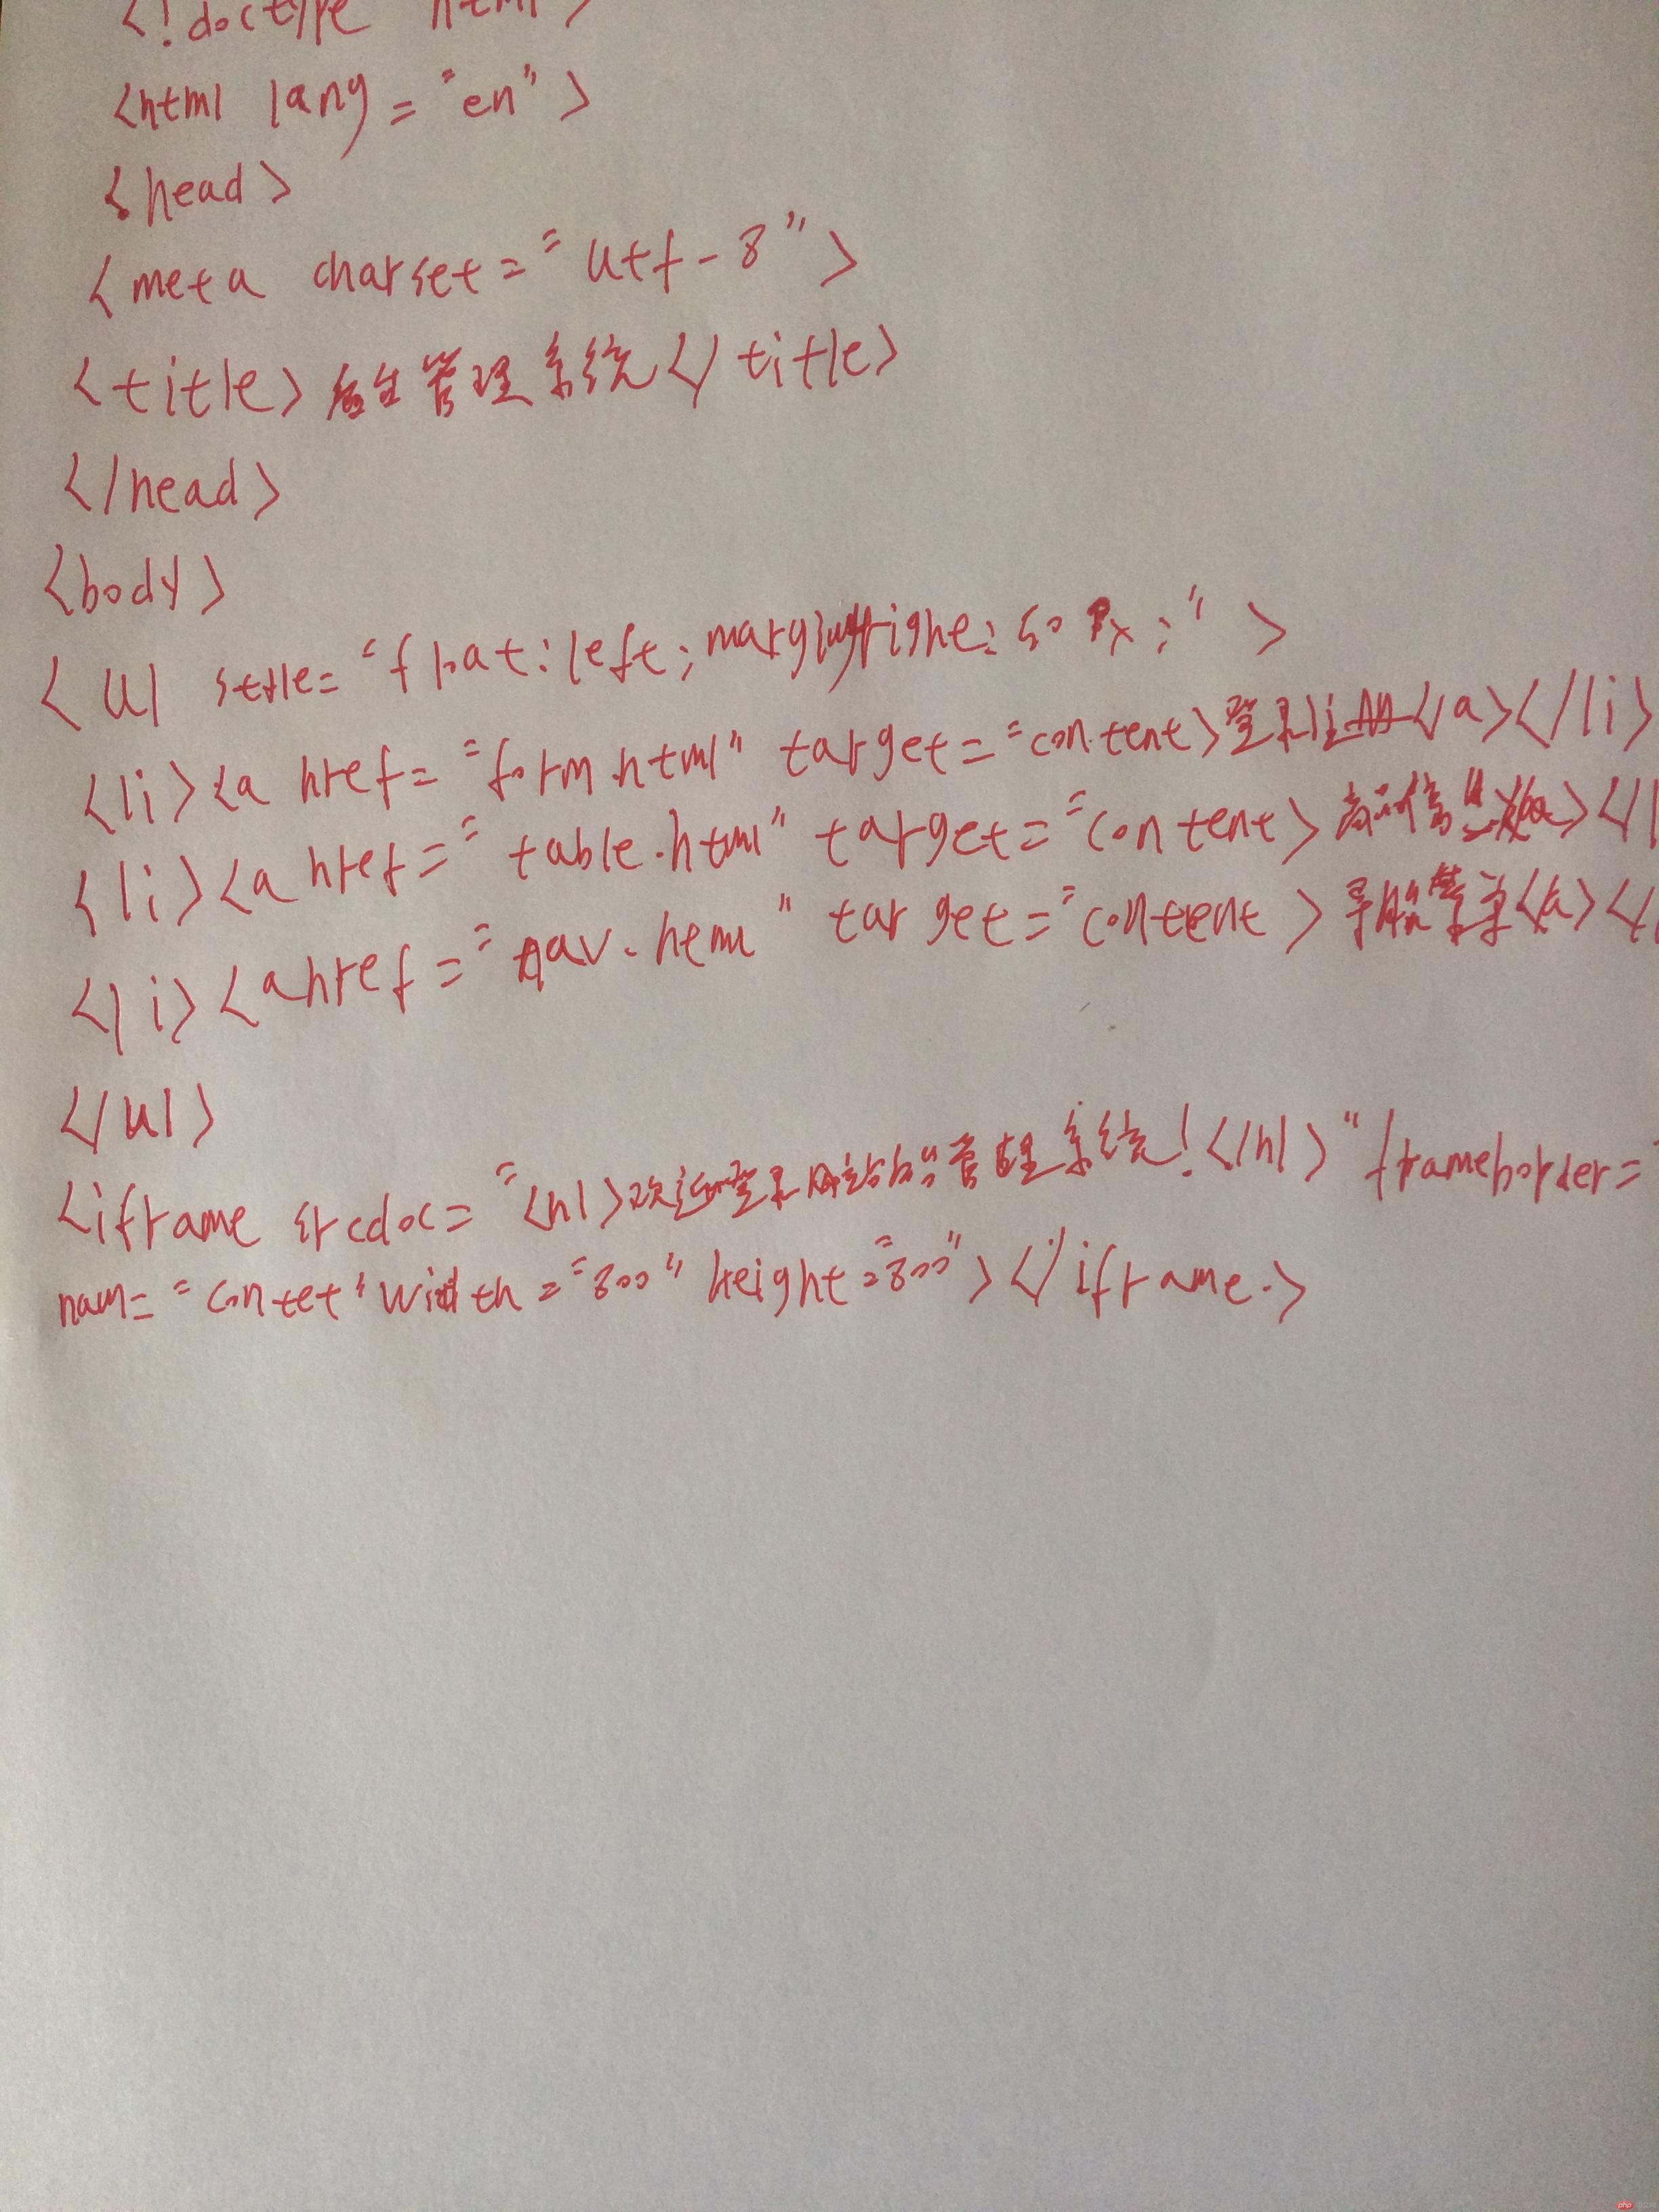 <!doctype html>
<html lang="en">
<head>
<meta charset="utf-8">
<title>后台管理系统</title>
</head>
<body>
<ul style="float:left;margin-right:50px;">
<li><a href="form.html" target="content>登录注册</a></li>
<li><a href="table.html" target="content>商品信息</a></l
<li><a href="nav.html" target="content>导航菜单</a></
</ul>
<iframe srcdoc="<h1>欢迎登录网站的管理系统!</h1>"frameborder="
nam="contet"width="800"height="800"></iframe>
php